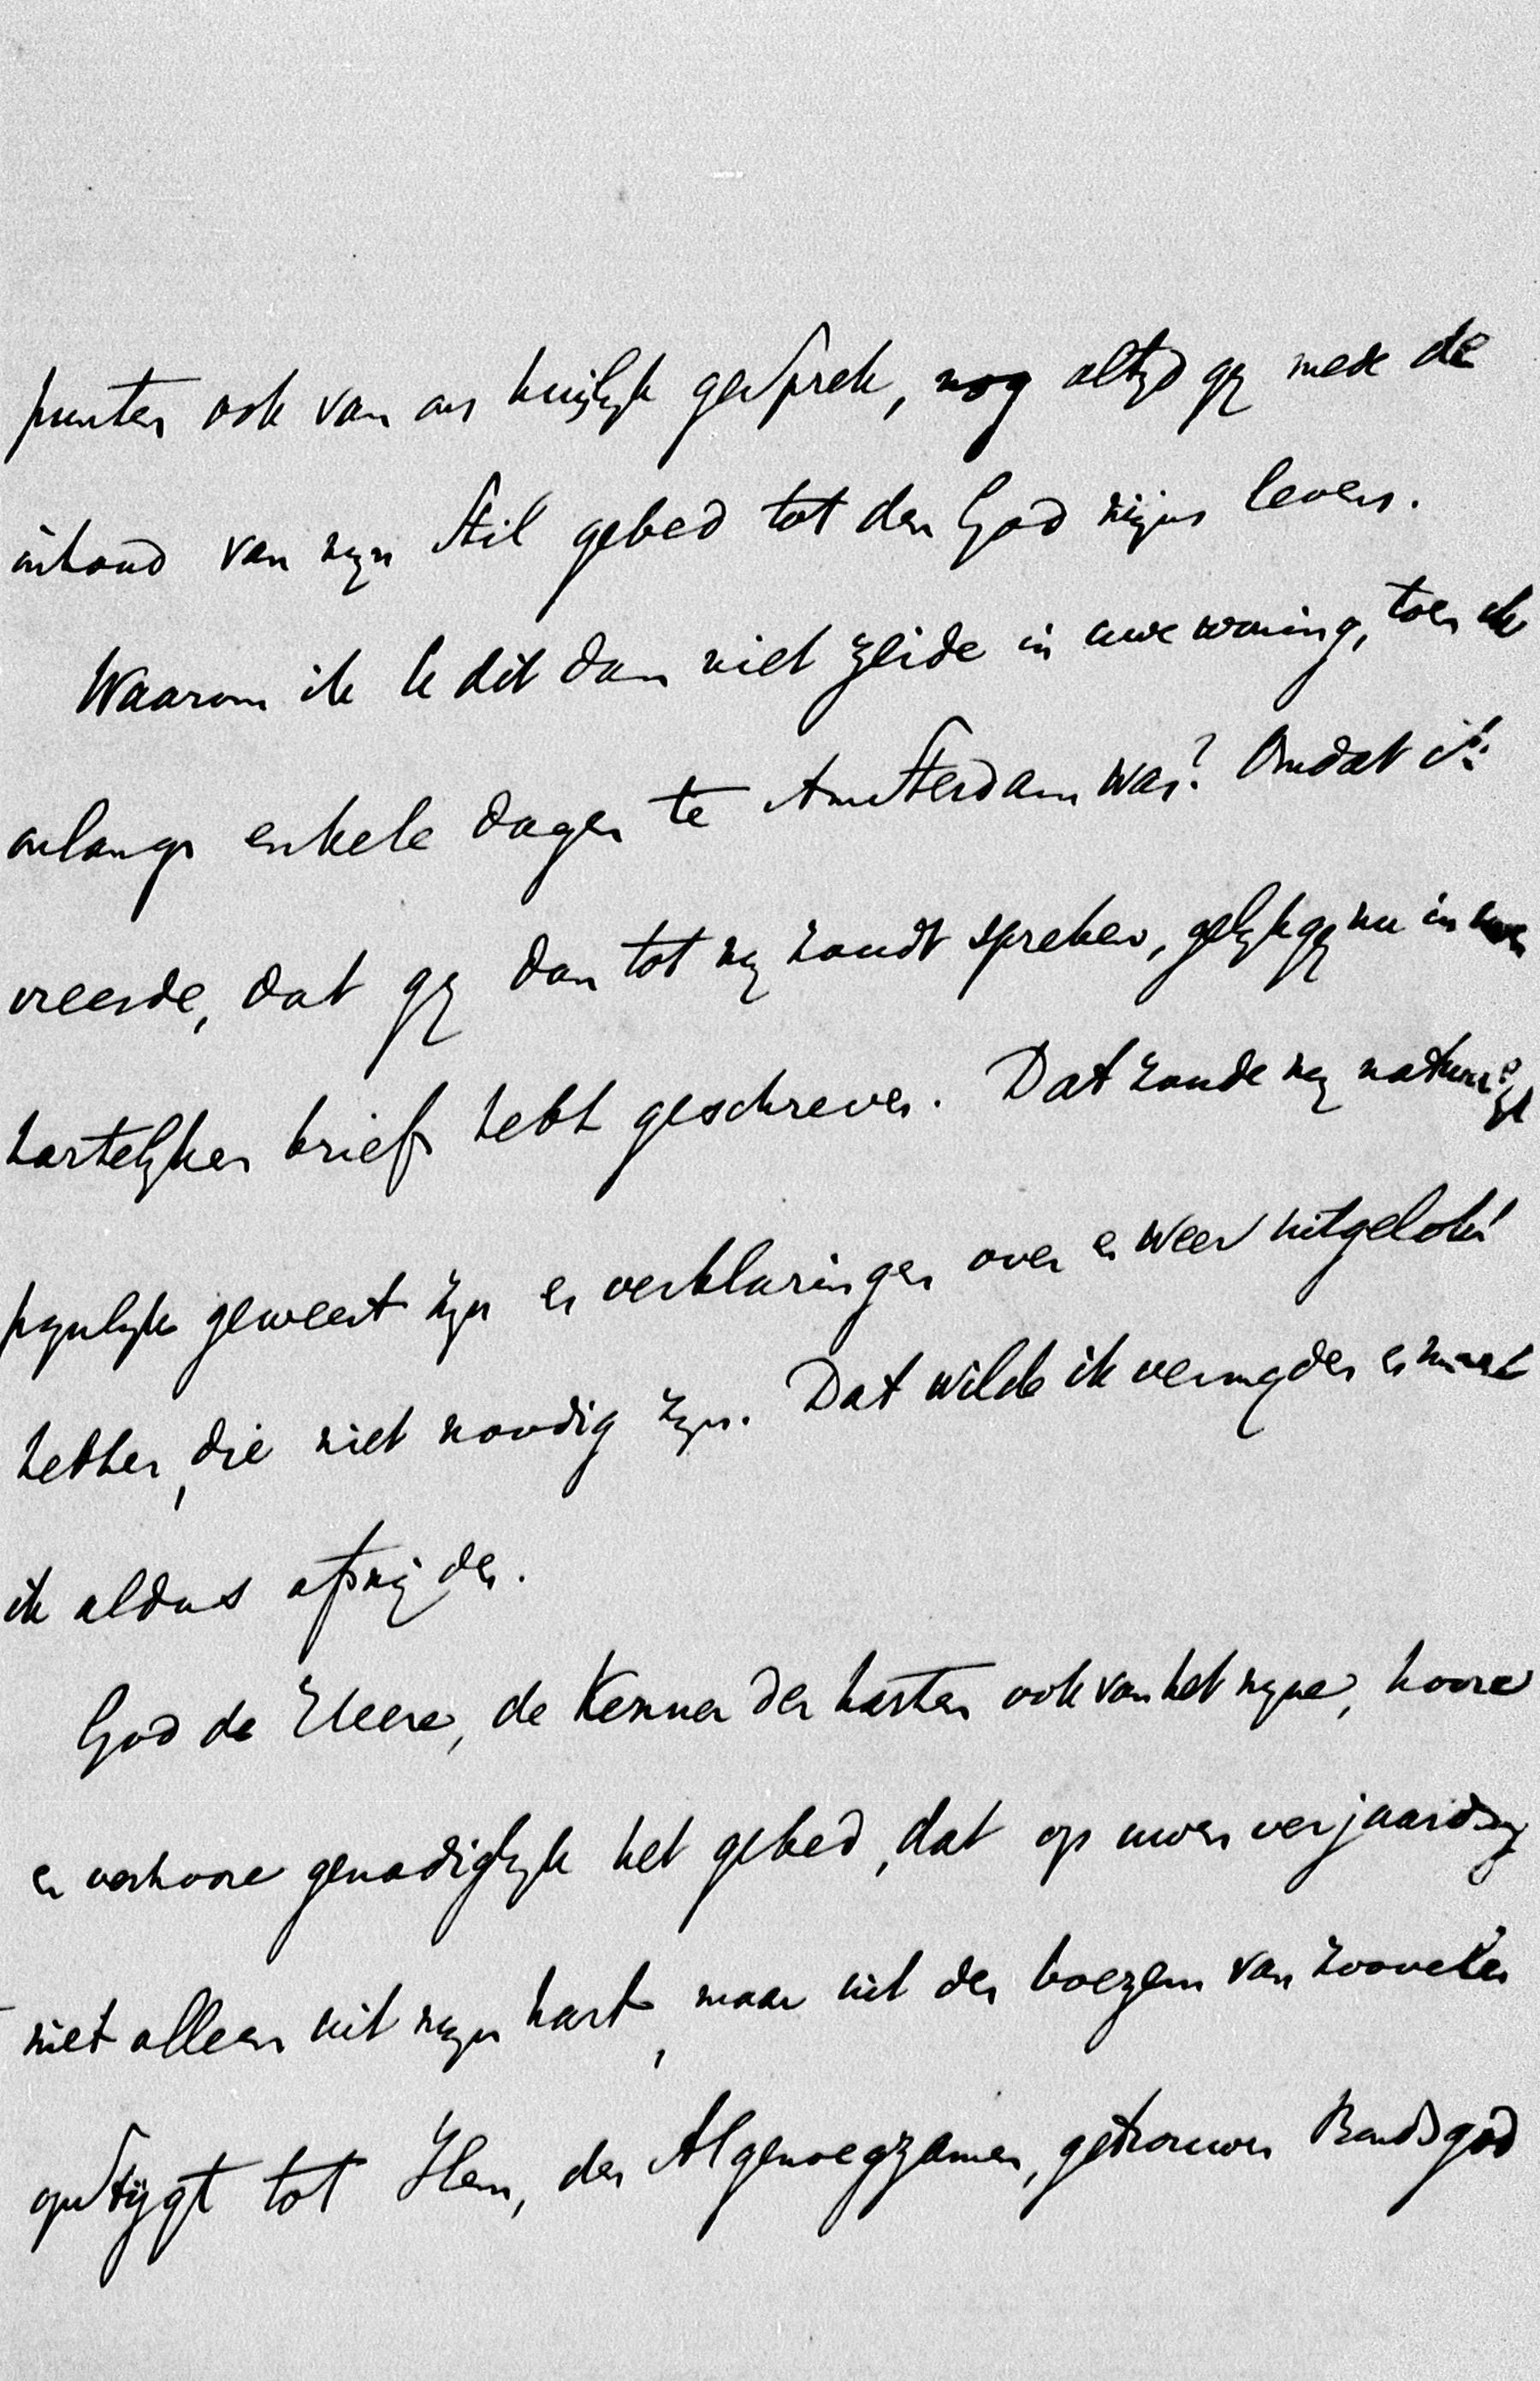 punten ook van ons huislijk gesprek, nog altijd gij mede de
inhoud van mijn stil gebed tot den God mijns levens.
Waarom ik U dit dan niet zeide in uwe woning, toen ik
onlangs enkele dagen te Amsterdam was? Omdat ik
vreesde, dat gij dan tot mij zoudt spreken, gelijk gij nu in uwen
hartelijken brief hebt geschreven. Dat zoude mij natuurlijk
pijnlijk geweest zijn en verklaringen over en weer uitgelokt
hebben, die niet noodig zijn. Dat wilde ik vermijden en moest
ik aldus afsnijden.
God de Heere, de Kenner der harten ook van het mijne, hoore
en verhoore genadiglijk het gebed, dat op uwen verjaardag
niet alleen uit mijn hart, maar uit den boezem van zoovelen
opstijgt tot Hem, den Algenoegzamen, getrouwen Bondsgod